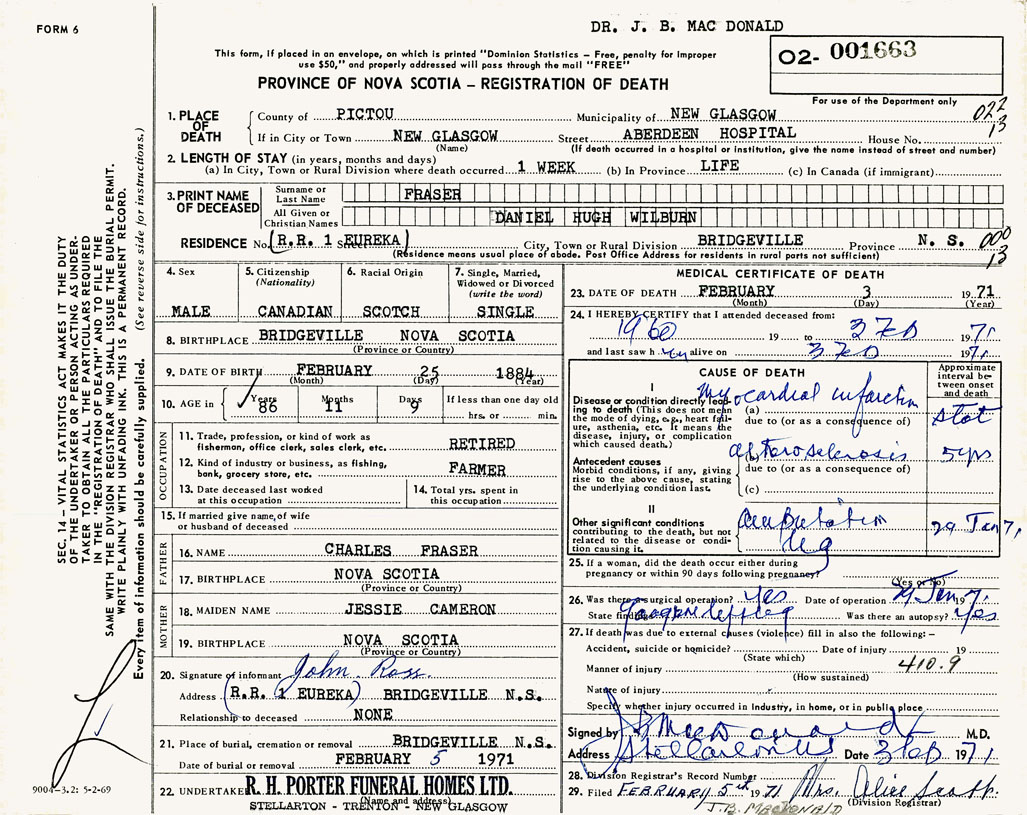 FORM 6
DR. J. B. MAC DONALD
This form, if placed in an envelope, on which is printed "Dominion Statistics – Free, penalty for improper
use $50," and properly addressed will pass through the mail "FREE"
02- 001663
PROVINCE OF NOVA SCOTIA – REGISTRATION OF DEATH
For use of the Department only
022
13
1. PLACE OF DEATH
County of PICTOU Municipality of NEW GLASGOW
If in City or Town NEW GLASGOW Street ABERDEEN HOSPITAL House No.
(Name) (If death occurred in a hospital or institution, give the name instead of street and number)
2. LENGTH OF STAY (in years, months and days)
(a) In City, Town or Rural Division where death occurred 1 WEEK (b) In Province LIFE (c) In Canada (if immigrant)
3. PRINT NAME OF DECEASED
Surname or Last Name FRASER
All Given or Christian Names DANIEL HUGH WILBURN
RESIDENCE No. (R.R. 1 S EUREKA) City, Town or Rural Division BRIDGEVILLE Province N. S. 000
13
(Residence means usual place of abode. Post Office Address for residents in rural parts not sufficient)
4. Sex
MALE
5. Citizenship (Nationality)
CANADIAN
6. Racial Origin
SCOTCH
7. Single, Married, Widowed or Divorced (write the word)
SINGLE
8. BIRTHPLACE BRIDGEVILLE NOVA SCOTIA
(Province or Country)
9. DATE OF BIRTH FEBRUARY 25 1884
(Month) (Day) (Year)
10. AGE in Years Months Days If less than one day old
86 11 9 hrs. or min.
OCCUPATION
11. Trade, profession, or kind of work as
fisherman, office clerk, sales clerk, etc. RETIRED
12. Kind of industry or business, as fishing,
bank, grocery store, etc. FARMER
13. Date deceased last worked
at this occupation
14. Total yrs. spent in
this occupation
15. If married give name, of wife
or husband of deceased
FATHER
16. NAME CHARLES FRASER
17. BIRTHPLACE NOVA SCOTIA
(Province or Country)
MOTHER
18. MAIDEN NAME JESSIE CAMERON
19. BIRTHPLACE NOVA SCOTIA
(Province or Country)
20. Signature of informant John Ross.
Address (R.R. 1 EUREKA) BRIDGEVILLE N.S.
Relationship to deceased NONE
21. Place of burial, cremation or removal BRIDGEVILLE N.S.
Date of burial or removal FEBRUARY 5 1971
22. UNDERTAKER R. H. PORTER FUNERAL HOMES LTD.
(Name and address)
STELLARTON - TRENTON - NEW GLASGOW
MEDICAL CERTIFICATE OF DEATH
23. DATE OF DEATH FEBRUARY 3 1971
(Month) (Day) (Year)
24. I HEREBY CERTIFY that I attended deceased from:
1960 19 to 3 Feb 1971
and last saw h im alive on 3 Feb 1971
CAUSE OF DEATH
Approximate interval between onset and death
I
Disease or condition directly leading to death (This does not mean the mode of dying, e.g., heart failure, asthenia, etc. It means the disease, injury, or complication which caused death.)
(a) Myocardial infarction stat
due to (or as a consequence of)
Antecedent causes
Morbid conditions, if any, giving rise to the above cause, stating the underlying condition last.
(b) 5 yrs
due to (or as a consequence of)
(c)
II
Other significant conditions
contributing to the death, but not related to the disease or condition causing it.
Amputation leg 29 Jan 71
25. If a woman, did the death occur either during
pregnancy or within 90 days following pregnancy?
(Yes or No)
26. Was there a surgical operation? Yes Date of operation 29 Jan 1971
State findings Gangrene left leg Was there an autopsy? Yes
27. If death was due to external causes (violence) fill in also the following:–
Accident, suicide or homicide? Date of injury 19
(State which)
Manner of injury 410.9
(How sustained)
Nature of injury
Specify whether injury occurred in Industry, in home, or in public place
Signed by J B MacDonald M.D.
Address Stellarton NS Date 3 Feb 1971
28. Division Registrar's Record Number
29. Filed FEBRUARY 5th 1971 Mrs. Alice
(Division Registrar)
J.B. MACDONALD
SEC. 14 – VITAL STATISTICS ACT MAKES IT THE DUTY
OF THE UNDERTAKER OR PERSON ACTING AS UNDER-
TAKER TO OBTAIN ALL THE PARTICULARS REQUIRED
IN THE "REGISTRATION OF DEATH" AND TO FILE THE
SAME WITH THE DIVISION REGISTRAR WHO SHALL ISSUE THE BURIAL PERMIT.
WRITE PLAINLY WITH UNFADING INK. THIS IS A PERMANENT RECORD.
Every item of information should be carefully supplied. (See reverse side for instructions.)
9004–3.2: 5-2-69